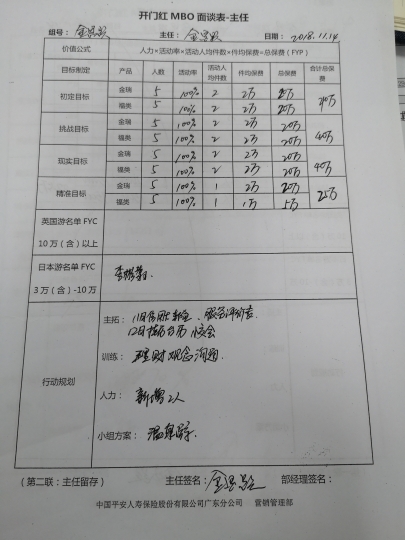 开门红 MBO 面谈表-主任
组号： 主任： 日期：2018.11.14
价值公式 人力×活动率×活动人均件数×件均保费=总保费（FYP）
目标制定 产品 人数 活动率 活动人均件数 件均保费 总保费 合计总保费
初定目标 金瑞 5 100% 2 2万 20万 40万
福类 5 100% 2 2万 20万
挑战目标 金瑞 5 100% 2 2万 20万 40万
福类 5 100% 2 2万 20万
现实目标 金瑞 5 100% 2 2万 20万 40万
福类 5 100% 2 2万 20万
精准目标 金瑞 5 100% 1 2万 20万 25万
福类 5 100% 1 1万 5万
英国游名单 FYC
10 万（含）以上
日本游名单 FYC
3 万（含）-10万
行动规划
主拓：11月
12月
训练：理财观念沟通
人力：新增2人
小组方案：温泉
（第二联：主任留存） 主任签名： 部经理签名：
中国平安人寿保险股份有限公司广东分公司 营销管理部